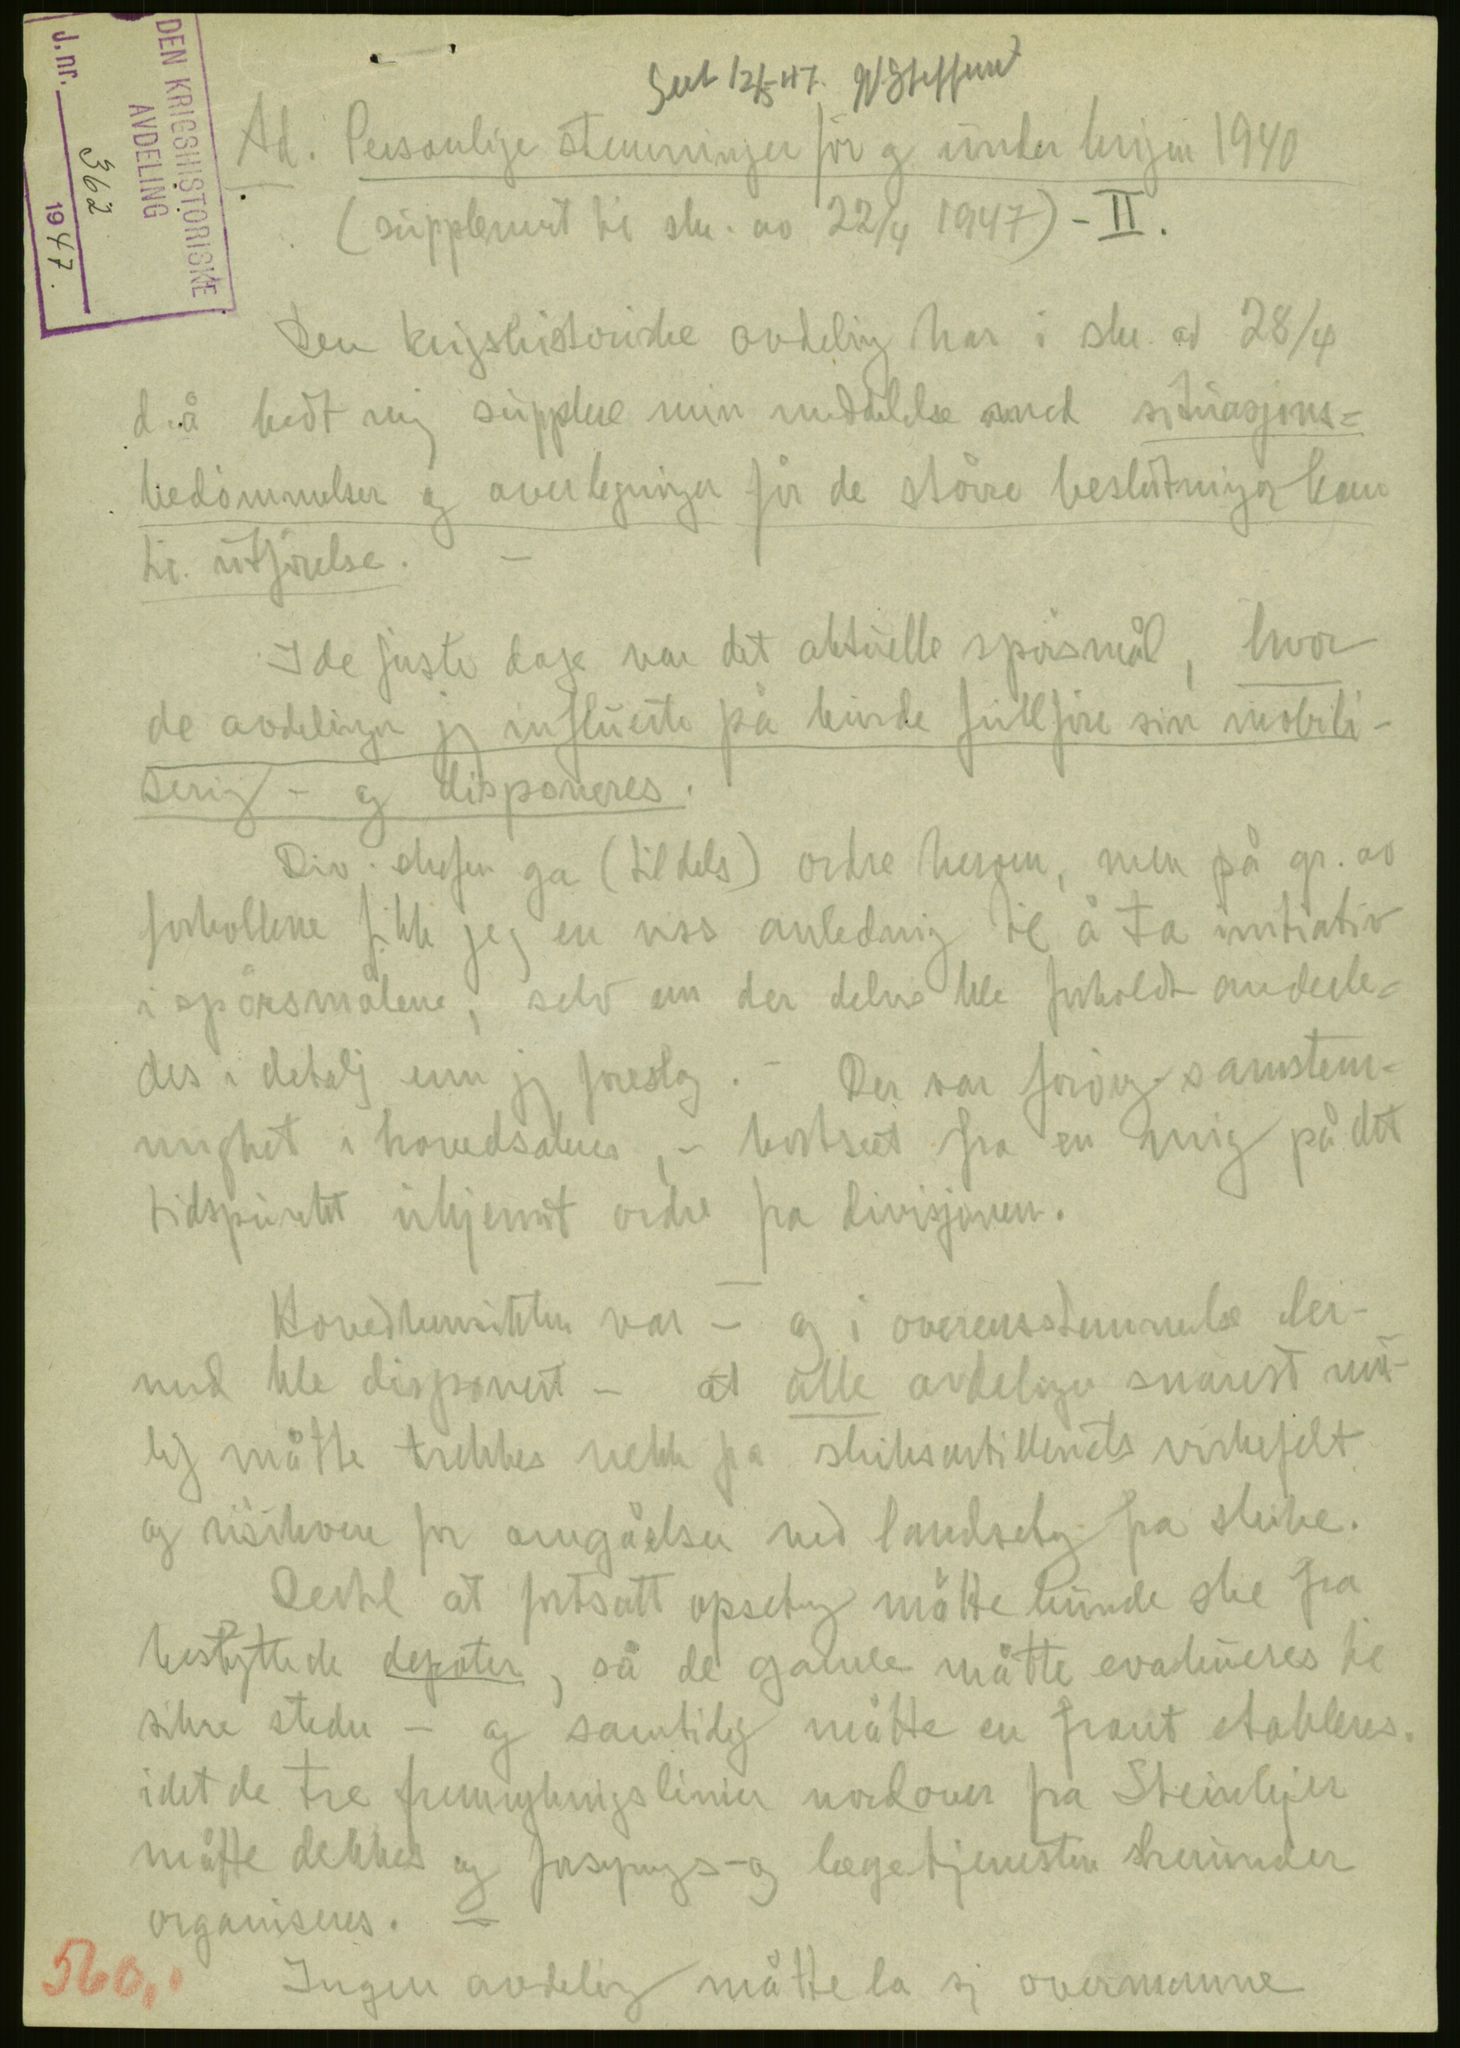 DEN KRIGSHISTORISKE
AVDELING
J. nr. 362 1947.
Sett 12/5-47. W Steffens
Ad. Personlige stemninger før og under krigen 1940
(supplement til skr. av 22/4 1947) - II.
Den krigshistoriske avdeling har i skr. av 28/4
d.å bedt mig supplere min meddelelse med situasjons=
bedømmelser og overlegninger før de større beslutninger kom
til utførelse. -
I de første dage var det aktuelle spørsmål, hvor
de avdelinger jeg influerte på kunde fullføre sin mobili-
sering - og disponeres.
Div. sjefen ga (til dels) ordre herom, men på gr. av
forholdene fikk jeg en viss anledning til å ta initiativ
i spørsmålene, selv om der delvis ble forholdt anderle=
des i detalj enn jeg foreslog. - Der var forøvrig samstem=
mighet i hovedsakene, - bortsett fra en mig på det
tidspunktet ukjennt ordre fra divisjonen.
Hovedhensikten var - og i overensstemmelse der-
med ble disponert - at alle avdelinger snarest mu-
lig måtte trekkes vekk fra skibsartilleriets virkefelt
og risikoen for omgåelser ved landsetning fra skibe.
Dertil at fortsatt opsetning måtte kunde ske fra
beskyttede depoter, så de gamle måtte evakueres til
sikre steder - og samtidig måtte en front etableres.
idet de tre fremrykningslinier nordover fra Steinkjer
måtte dekkes og forsynings- og legetjenesten herunder
organiseres. -
Ingen avdeling måtte la sig overmanne
560,.